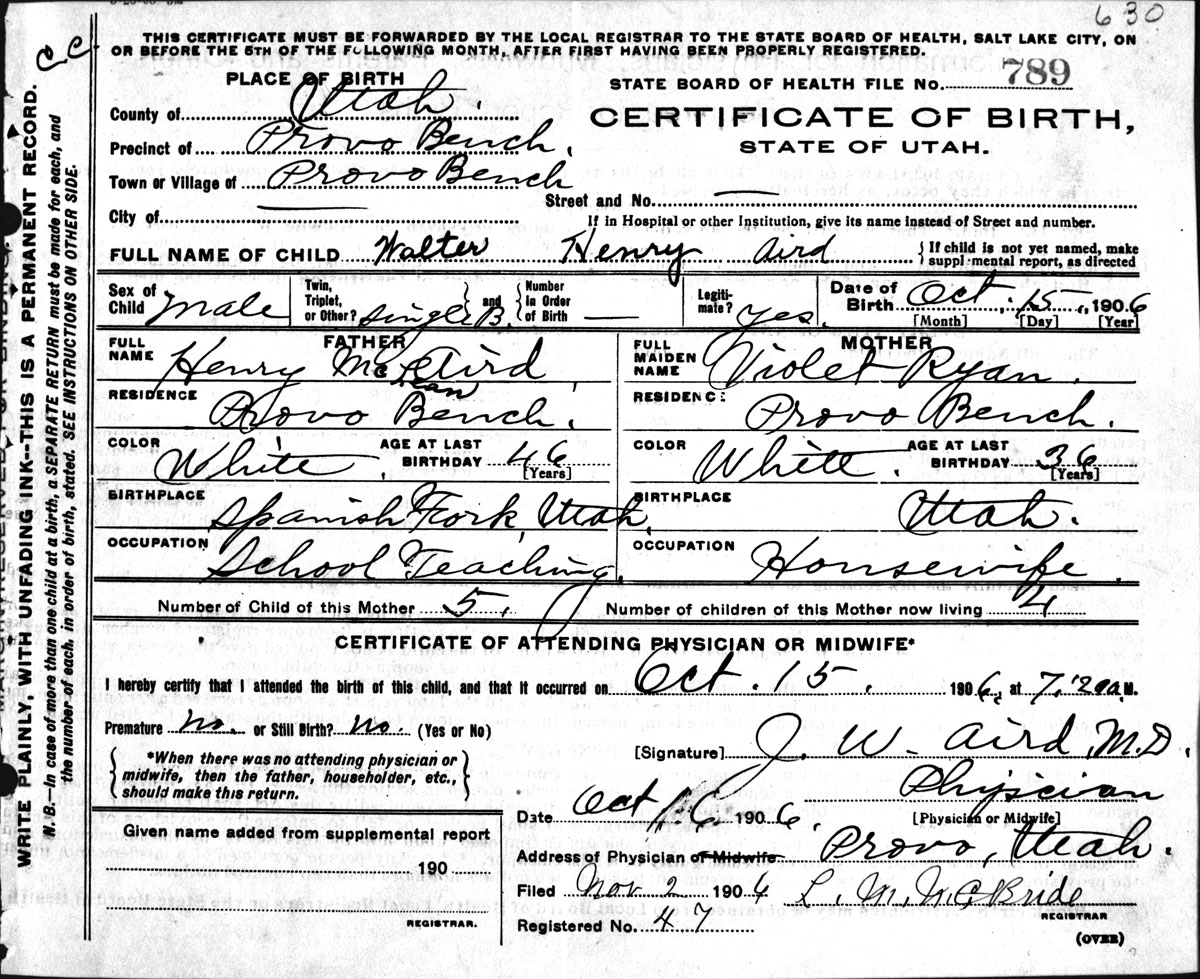 630
C C
THIS CERTIFICATE MUST BE FORWARDED BY THE LOCAL REGISTRAR TO THE STATE BOARD OF HEALTH, SALT LAKE CITY, ON
OR BEFORE THE 5TH OF THE FOLLOWING MONTH, AFTER FIRST HAVING BEEN PROPERLY REGISTERED.
WRITE PLAINLY, WITH UNFADING INK--THIS IS A PERMANENT RECORD.
N. B.--In case of more than one child at a birth, a SEPARATE RETURN must be made for each, and
the number of each, in order of birth, stated. SEE INSTRUCTIONS ON OTHER SIDE.
PLACE OF BIRTH
County of Utah.
Precinct of Provo Bench.
Town or Village of Provo Bench
City of
STATE BOARD OF HEALTH FILE No. 789
CERTIFICATE OF BIRTH,
STATE OF UTAH.
Street and No. —
If in Hospital or other Institution, give its name instead of Street and number.
FULL NAME OF CHILD Walter Henry Aird { If child is not yet named, make
suppl mental report, as directed
Sex of Child Male
Twin, Triplet, or Other? Single B. and Number in Order of Birth —
Legiti-mate? yes.
Date of Birth Oct. 15, 1906
[Month] [Day] [Year]
FATHER
FULL NAME Henry Mc Aird
ean
RESIDENCE Provo Bench.
COLOR White. AGE AT LAST BIRTHDAY 46 [Years]
BIRTHPLACE Spanish Fork, Utah,
OCCUPATION School Teaching.
MOTHER
FULL MAIDEN NAME Violet Ryan.
RESIDENCE: Provo Bench.
COLOR White. AGE AT LAST BIRTHDAY 36 [Years]
BIRTHPLACE Utah.
OCCUPATION Housewife.
Number of Child of this Mother 5. Number of children of this Mother now living 4
CERTIFICATE OF ATTENDING PHYSICIAN OR MIDWIFE*
I hereby certify that I attended the birth of this child, and that it occurred on Oct. 15. 1906, at 7:20 a.M.
Premature no. or Still Birth? no. (Yes or No)
*When there was no attending physician or
midwife, then the father, householder, etc.,
should make this return.
[Signature] J. W. Aird, M.D.
Physician
[Physician or Midwife]
Date Oct 16 1906.
Address of Physician or Midwife Provo, Utah.
Given name added from supplemental report
190
REGISTRAR.
Filed Nov 2 1906 L. M. McBride
REGISTRAR
Registered No. 47
(OVER)